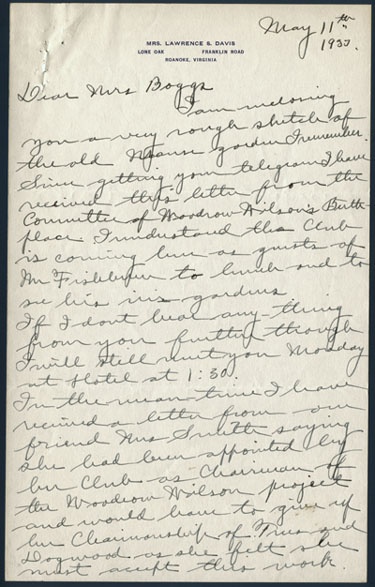 May 11th
1933.
MRS. LAWRENCE S. DAVIS
LONE OAK FRANKLIN ROAD
ROANOKE, VIRGINIA
Dear Mrs Boggs
I am inclosing
you a very rough sketch of
the old Manse garden I remember.
Since getting your telegram I have
received this letter from the
Committee of Woodrow Wilson's Birth-
place I understand the Club
is coming here as guests of
Mr Fishburn to lunch and to
see his iris gardens
If I dont hear any-thing
from you further though
I will still meet you Monday
at Hotel at 1:30.
In the mean time I have
received a letter from our
friend Mrs Smith saying
she had been appointed by
her Club as Chairman of
the Woodrow Wilson project
and would have to give up
her Chairmanship of Trees and
Dogwood as she felt she
must accept this work.